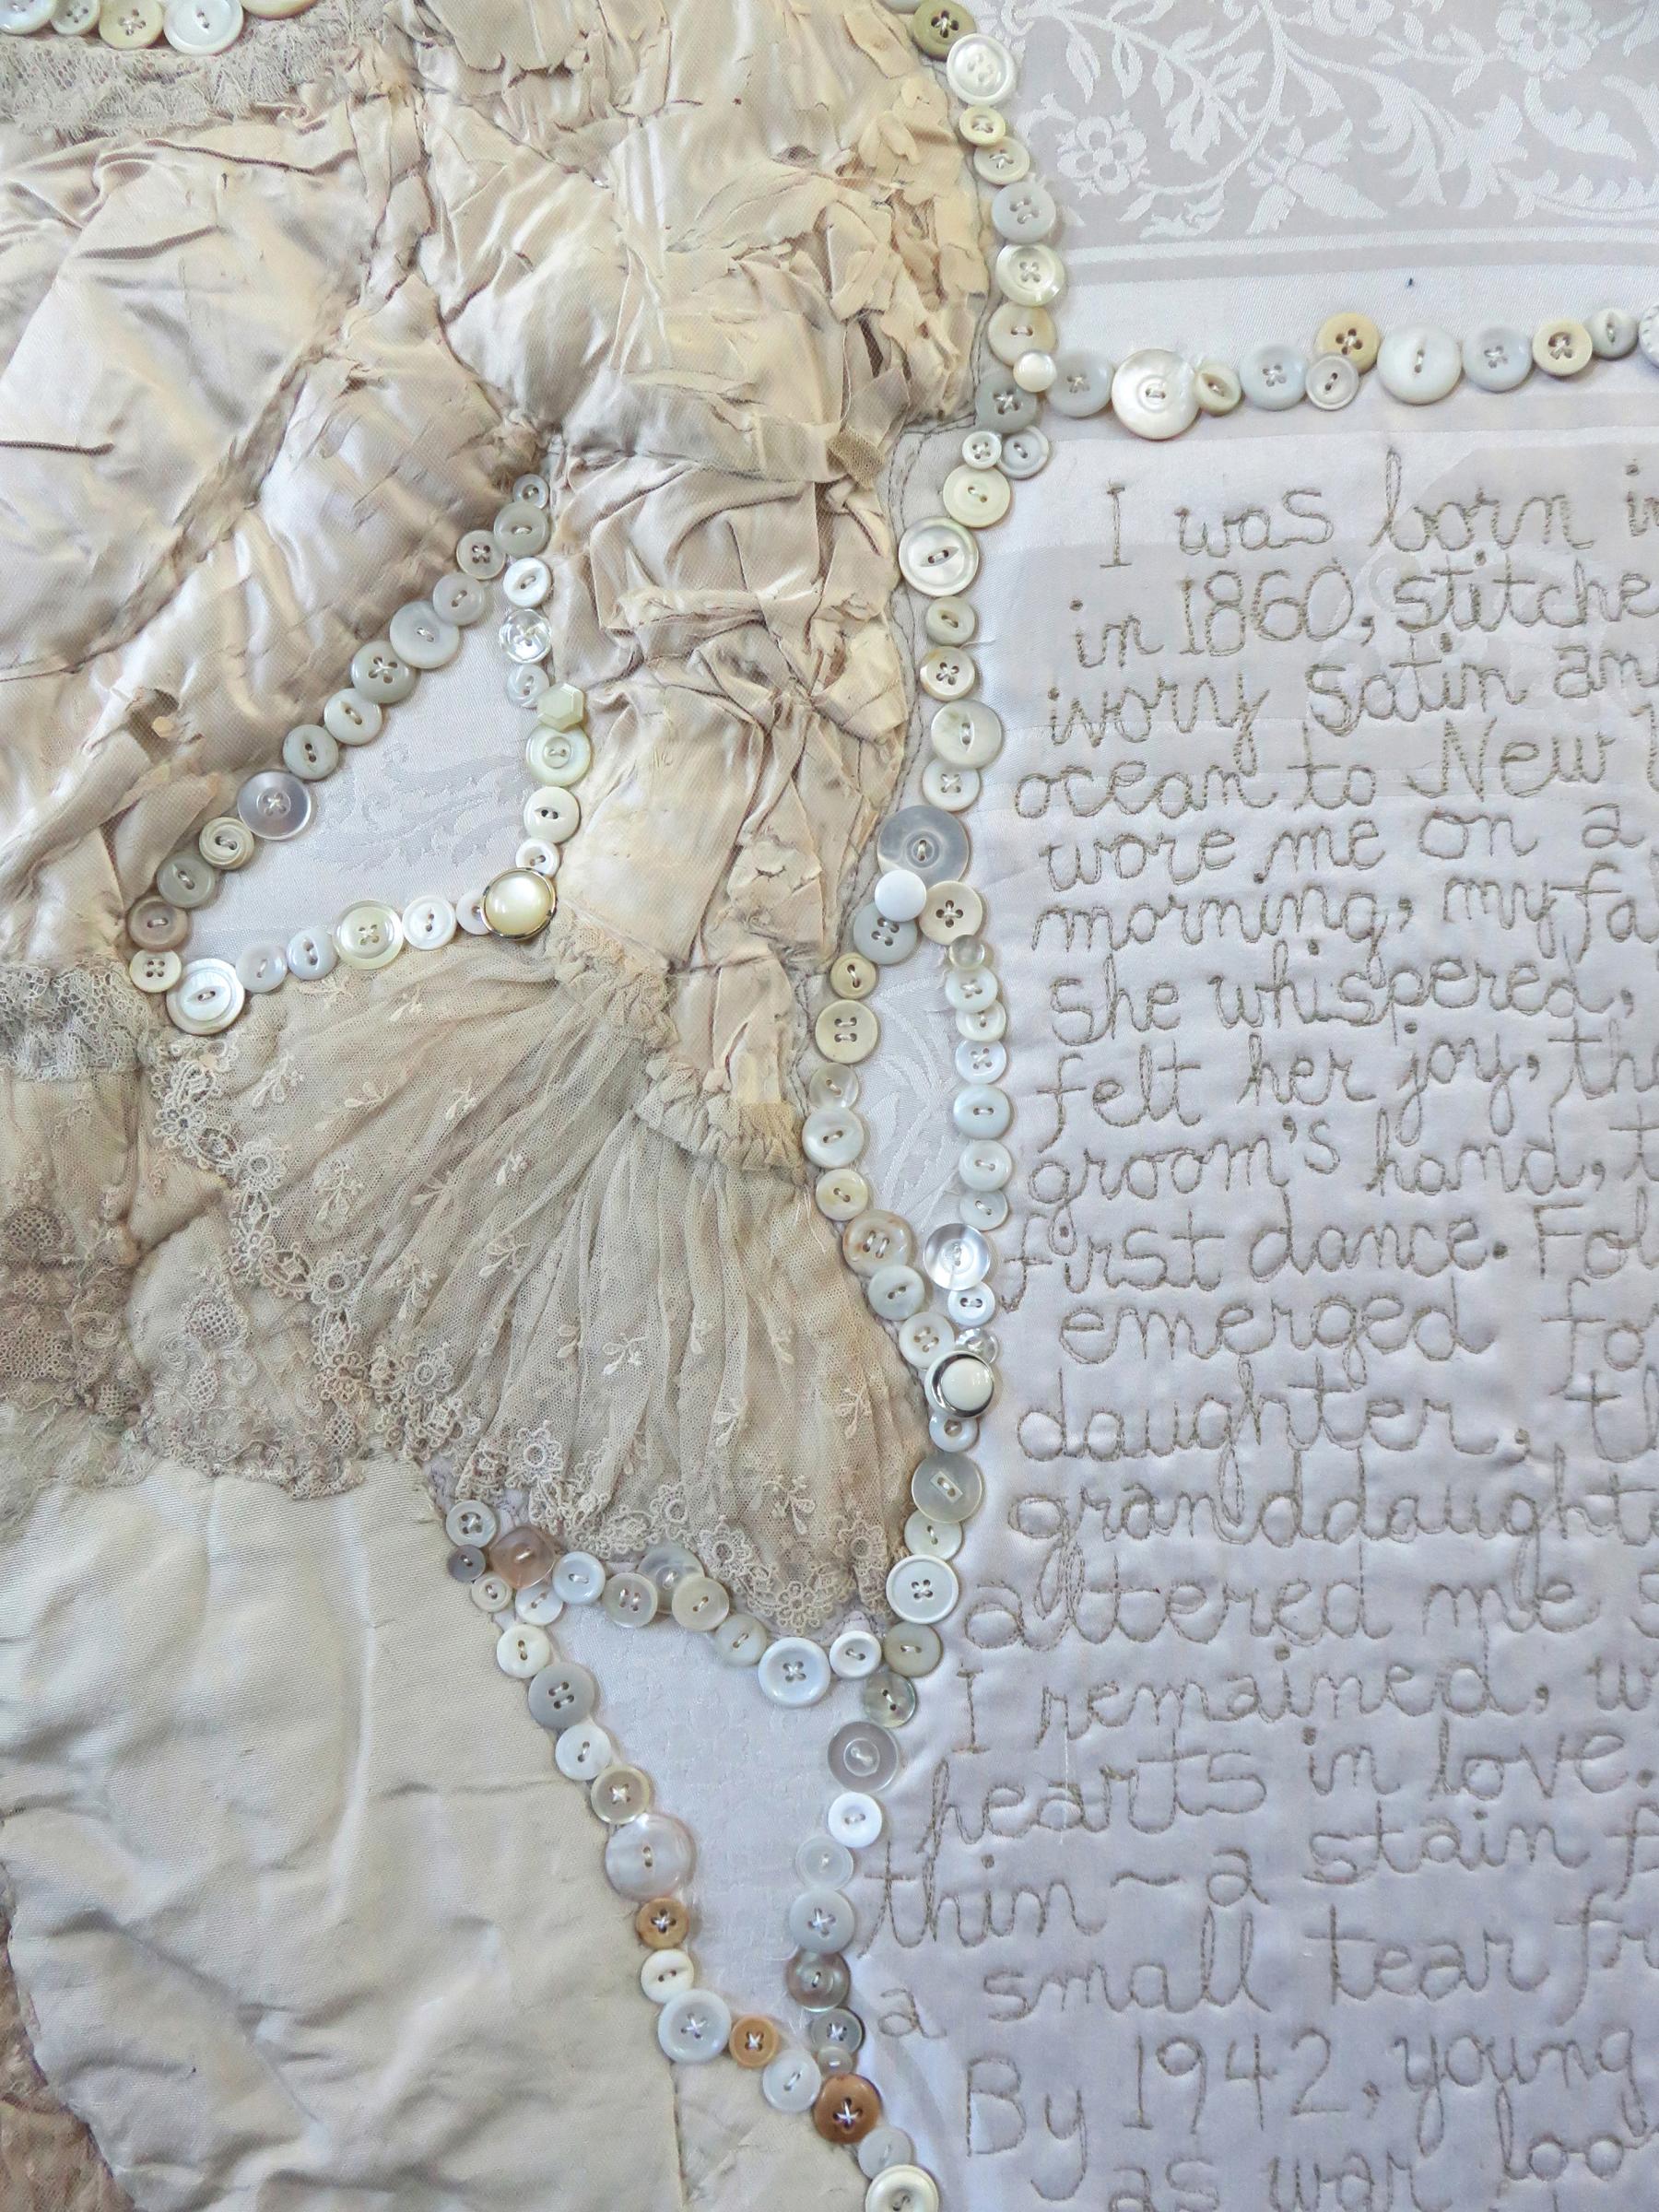 I was born
in 1860, stitche
ivory satin an
ocean to New
wore me on a
morning, my fa
she whispered,
felt her joy, the
groom's hand, t
first dance. Fol
emerged fo
daughter, th
granddaughte
altered me s
I remained, w
hearts in love.
thin ~ a stain f
a small tear fr
By 1942, young
as war loo